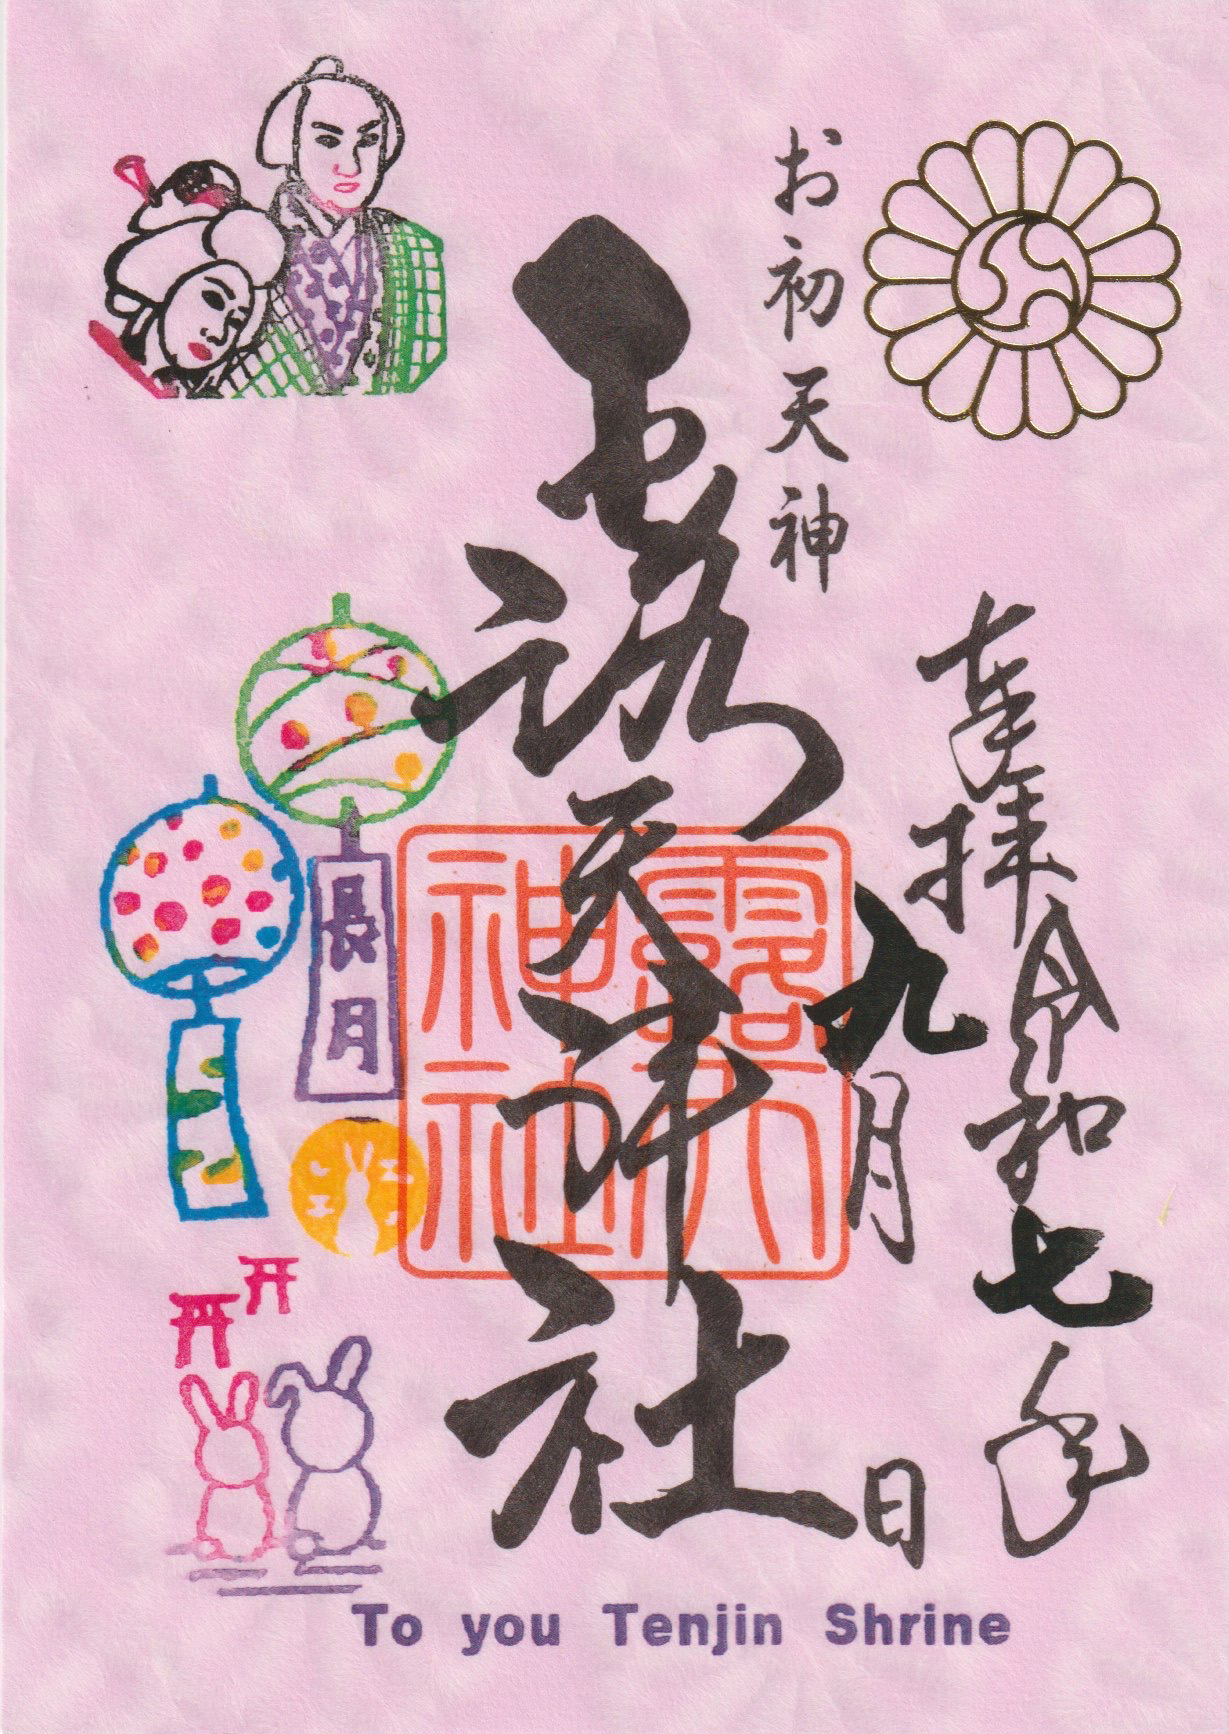 お初天神
奉拝
令和七年
九月
日
露天神社
露天
神社
長月
To you Tenjin Shrine